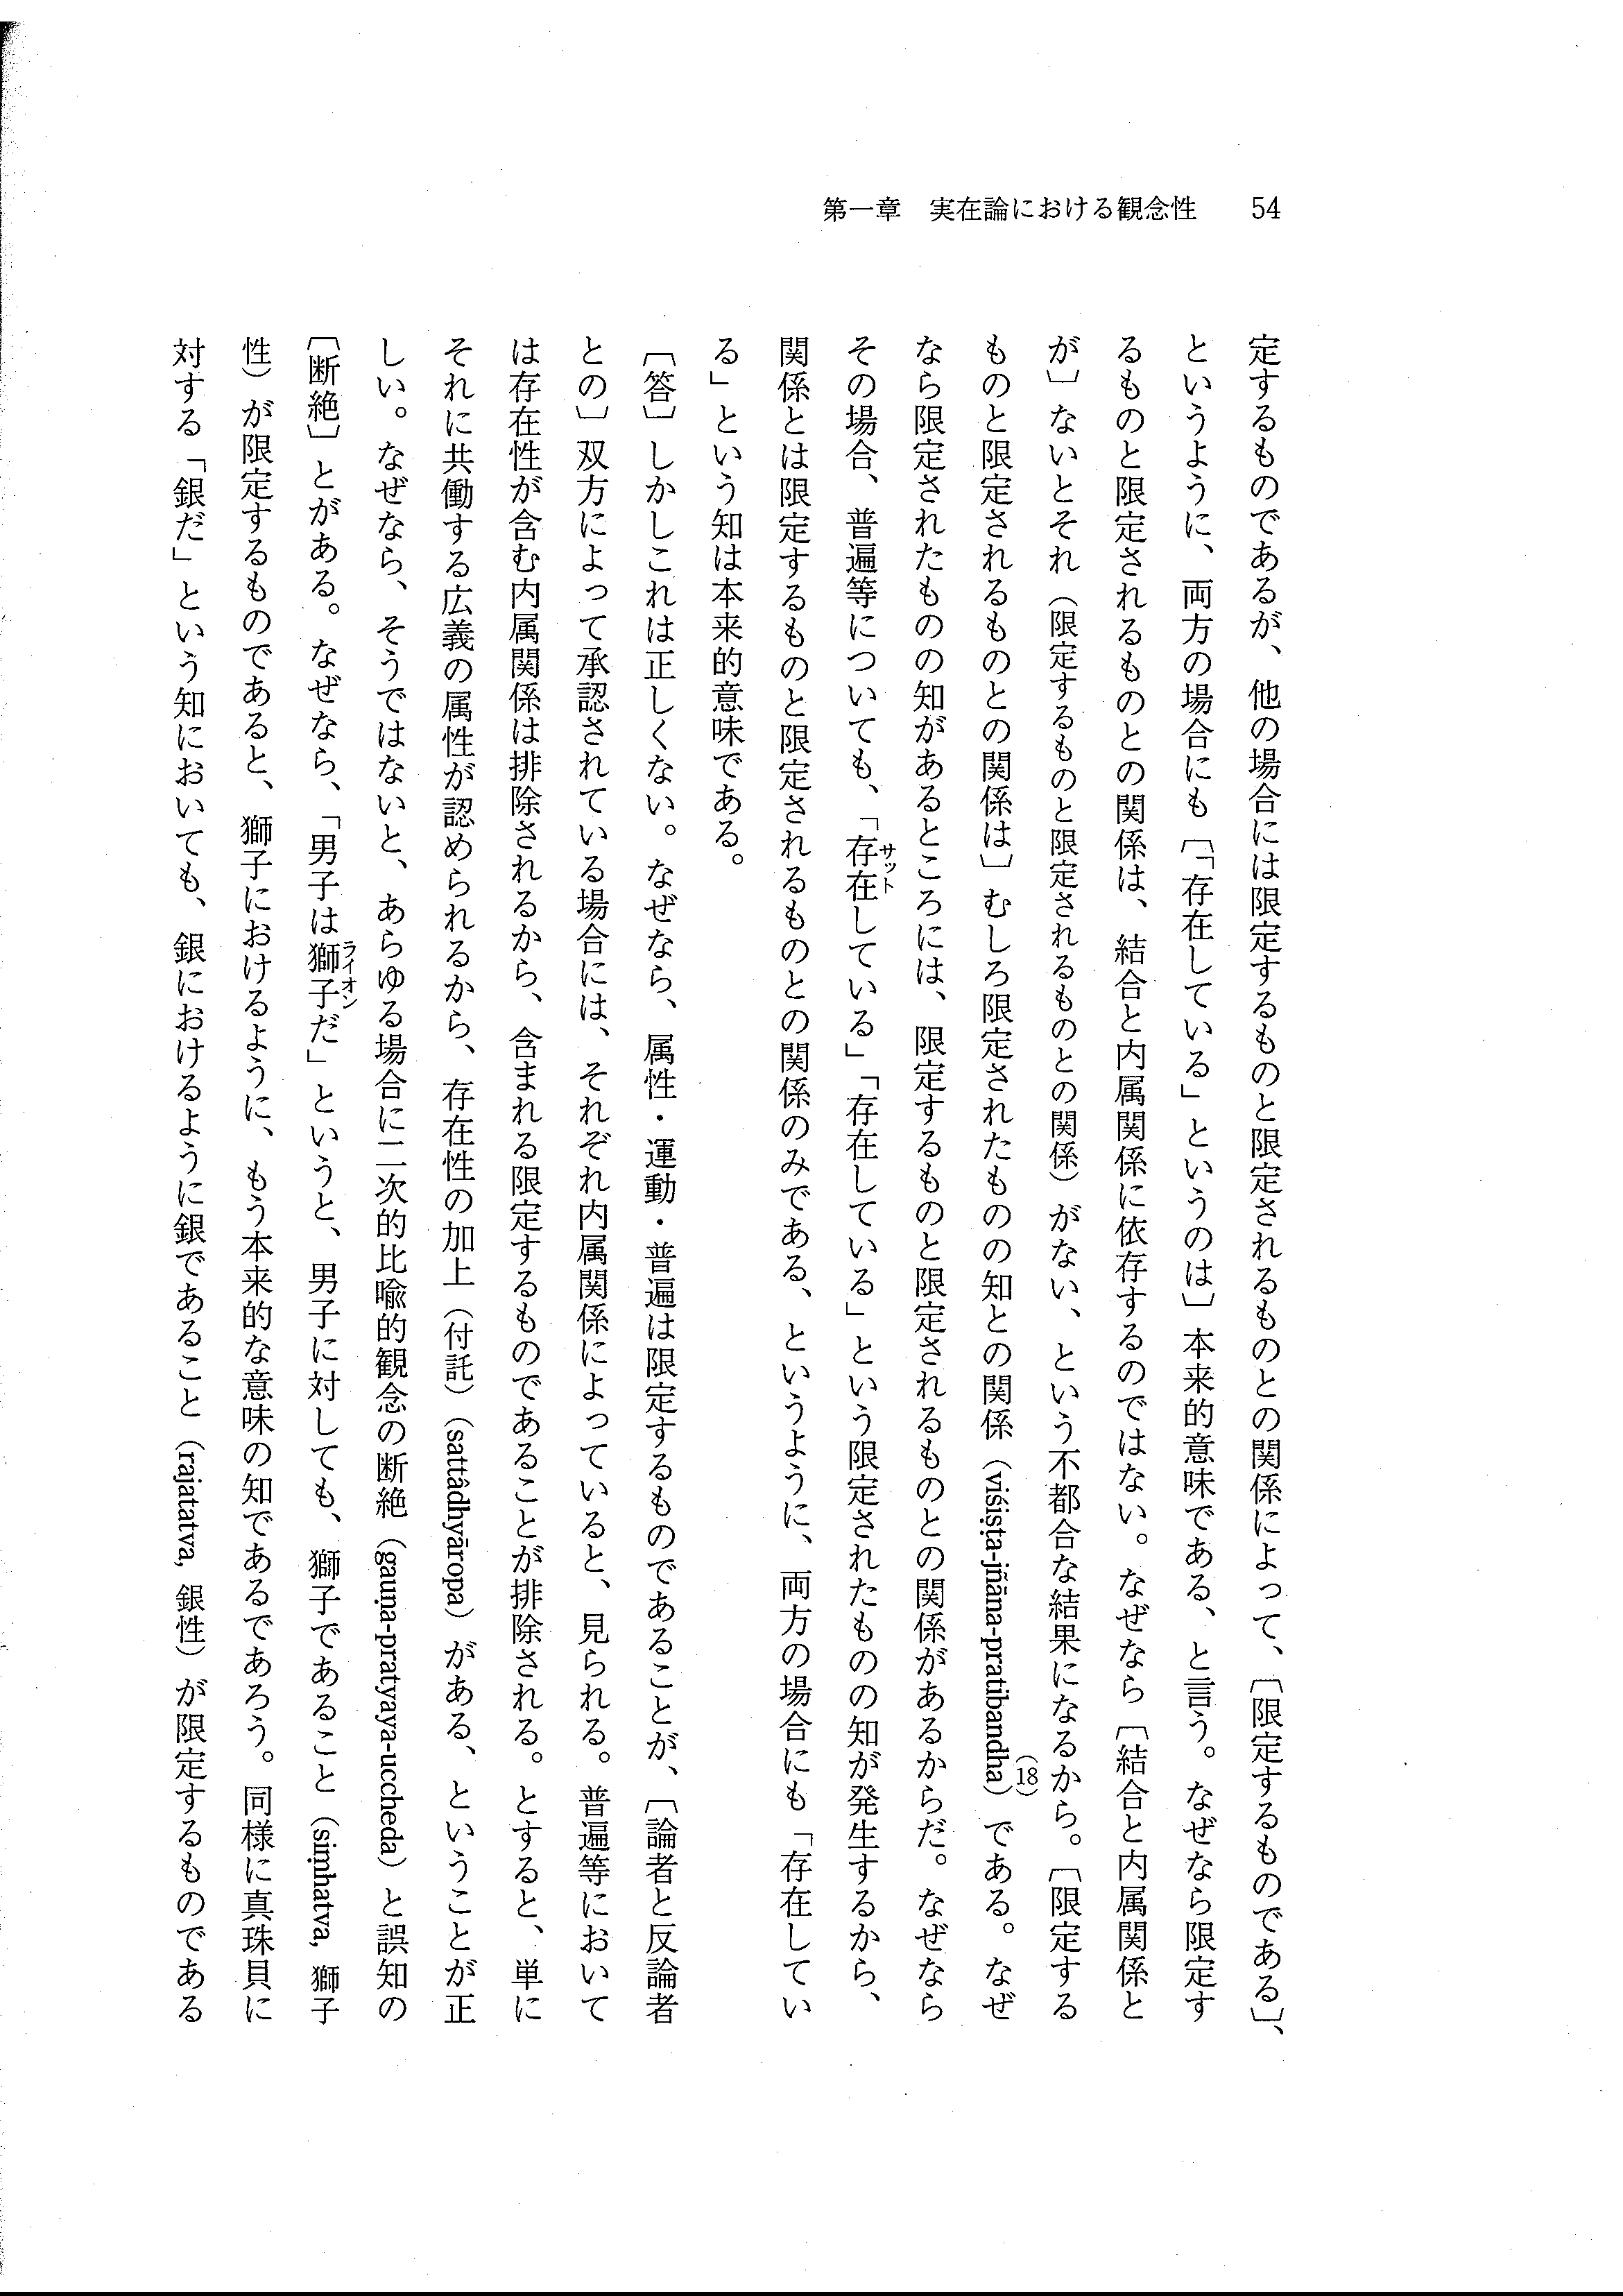 第一章　実在論における観念性　54
定するものであるが、他の場合には限定するものと限定されるものとの関係によって、〔限定するものである〕、
というように、両方の場合にも〔「存在している」というのは〕本来的意味である、と言う。なぜなら限定す
るものと限定されるものとの関係は、結合と内属関係に依存するのではない。なぜなら〔結合と内属関係と
が〕ないとそれ（限定するものと限定されるものとの関係）がない、という不都合な結果になるから。〔限定する
ものと限定されるものとの関係は〕むしろ限定されたものの知との関係（viśiṣṭa-jñāna-pratibandha）(18)である。なぜ
なら限定されたものの知があるところには、限定するものと限定されるものとの関係があるからだ。なぜなら
その場合、普遍等についても、「存在（サット）している」「存在している」という限定されたものの知が発生するから、
関係とは限定するものと限定されるものとの関係のみである、というように、両方の場合にも「存在してい
る」という知は本来的意味である。
〔答〕しかしこれは正しくない。なぜなら、属性・運動・普遍は限定するものであることが、〔論者と反論者
との〕双方によって承認されている場合には、それぞれ内属関係によっていると、見られる。普遍等において
は存在性が含む内属関係は排除されるから、含まれる限定するものであることが排除される。とすると、単に
それに共働する広義の属性が認められるから、存在性の加上（付託）（sattâdhyāropa）がある、ということが正
しい。なぜなら、そうではないと、あらゆる場合に二次的比喩的観念の断絶（gauṇa-pratyaya-uccheda）と誤知の
〔断絶〕とがある。なぜなら、「男子は獅子（ライオン）だ」というと、男子に対しても、獅子であること（siṃhatva, 獅子
性）が限定するものであると、獅子におけるように、もう本来的な意味の知であるであろう。同様に真珠貝に
対する「銀だ」という知においても、銀におけるように銀であること（rajatatva, 銀性）が限定するものである